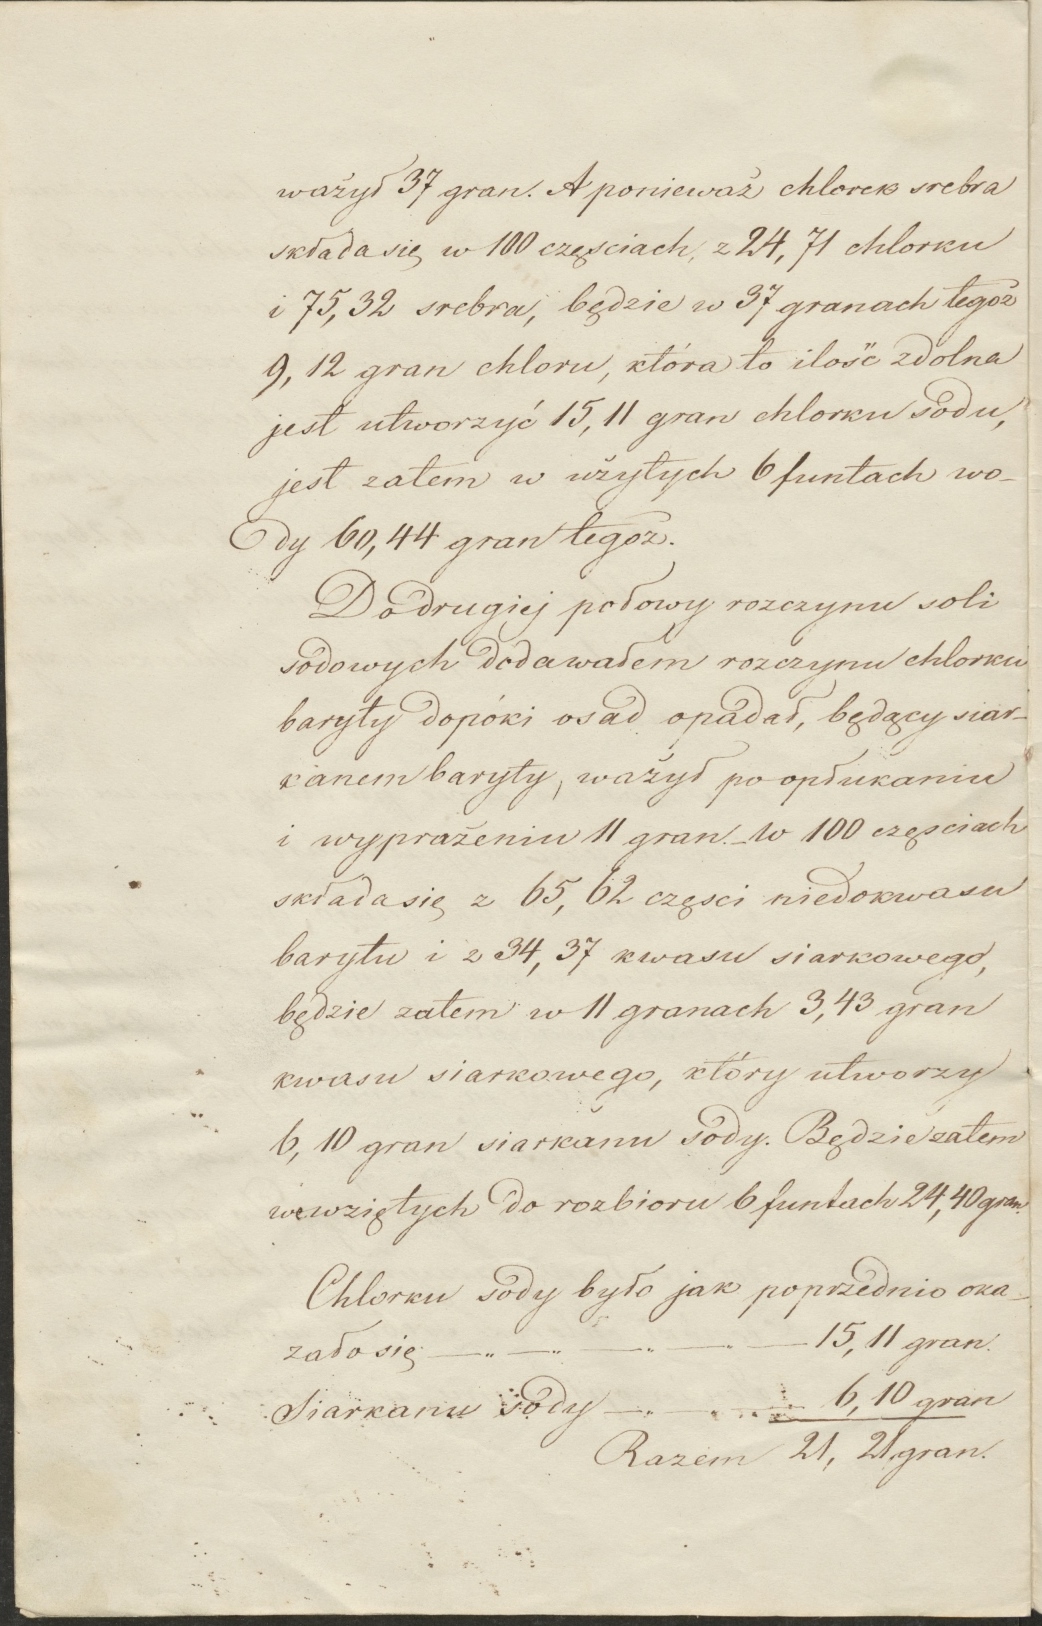 ważył 37 gran. A ponieważ chlorek srebra
składa się w 100 częsciach, z 24, 71 chlorku
i 75, 32 srebra, będzie w 37 granach tegoż
9, 12 gran chloru, która to ilość zdolna
jest utworzyć 15, 11 gran chlorku sodu,
jest zatem w użytych 6 funtach wo-
dy 60, 44 gran tegoż.
Do drugiej połowy rozczynu soli
sodowych dodawałem rozczynu chlorku
baryty dopóki osad opadał, będący siar-
kanem baryty, ważył po opłukaniu
i wyprażeniu 11 gran. – W 100 częsciach
składa się z 65, 62 częsci niedokwasu
barytu i z 34, 37 kwasu siarkowego,
będzie zatem w 11 granach 3, 43 gran
kwasu siarkowego, który utworzy
6, 10 gran siarkanu sody. Będzie zatem
we wziętych do rozbioru 6 funtach 24, 40 gran.
Chlorku sody było jak poprzednio oka-
zało się — „ — „ — „ — „ — 15, 11 gran.
Siarkanu sody — „ — „ — 6, 10 gran
Razem 21, 21 gran.